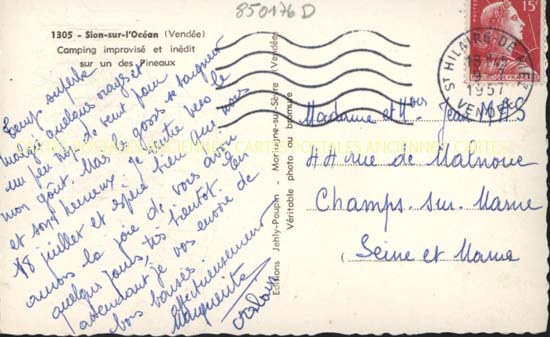 850176 D
1305 - Sion-sur-l'Océan (Vendée)
Camping improvisé et inédit
sur un des Pineaux
Temps superbe
malgré quelques orages et
un peu trop de vent pour
mon goût. Mais les gosses se baignent
et sont heureux. Je rentre vers le
18 juillet et espère bien que nous
aurons la joie de vous avoir
quelques jours, très bientôt. En
attendant je vous envoie de
bons baisers.
affectueusement
Marguerite
Editions Jehly-Poupin - Mortagne-sur-Sèvre (Vendée)
Véritable photo au bromure
CARTES POSTALES ANCIENNES
15F
ST HILAIRE-DE-RIEZ
1957
VENDÉE
Madame et Mr Jean
44 rue de Malnoue
Champs-sur-Marne
Seine et Marne